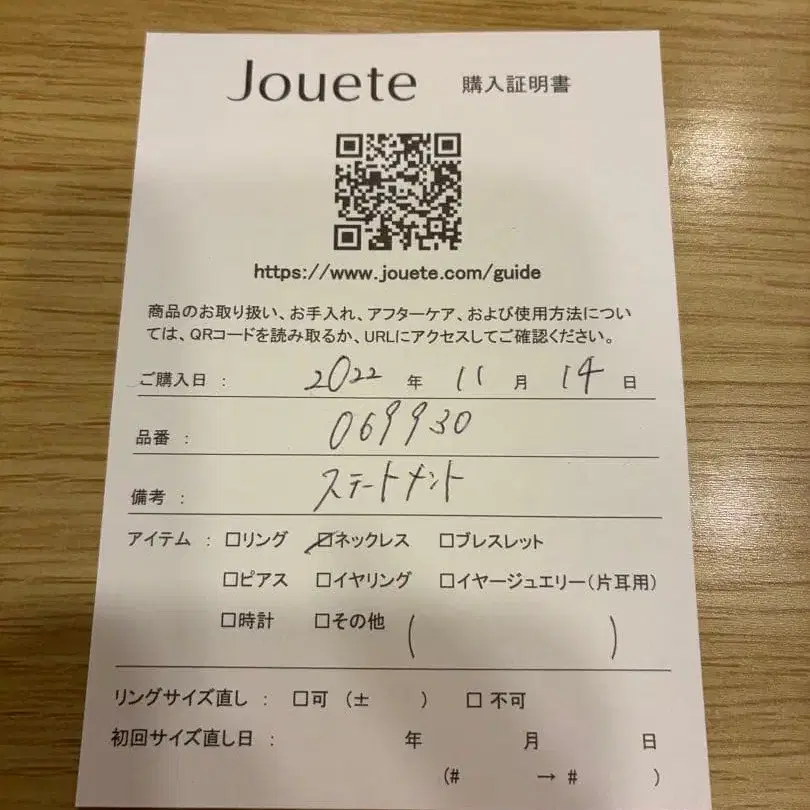 Jouete 購入証明書
https://www.jouete.com/guide
商品のお取り扱い、お手入れ、アフターケア、および使用方法につい
ては、QRコードを読み取るか、URLにアクセスしてご確認ください。
ご購入日 : 2022 年 11 月 14 日
品番 : 069930
備考 : ステートメント
アイテム : □リング ☑ネックレス □ブレスレット
□ピアス □イヤリング □イヤージュエリー(片耳用)
□時計 □その他 ( )
リングサイズ直し : □可 (± ) □ 不可
初回サイズ直し日 : 年 月 日
(# → # )